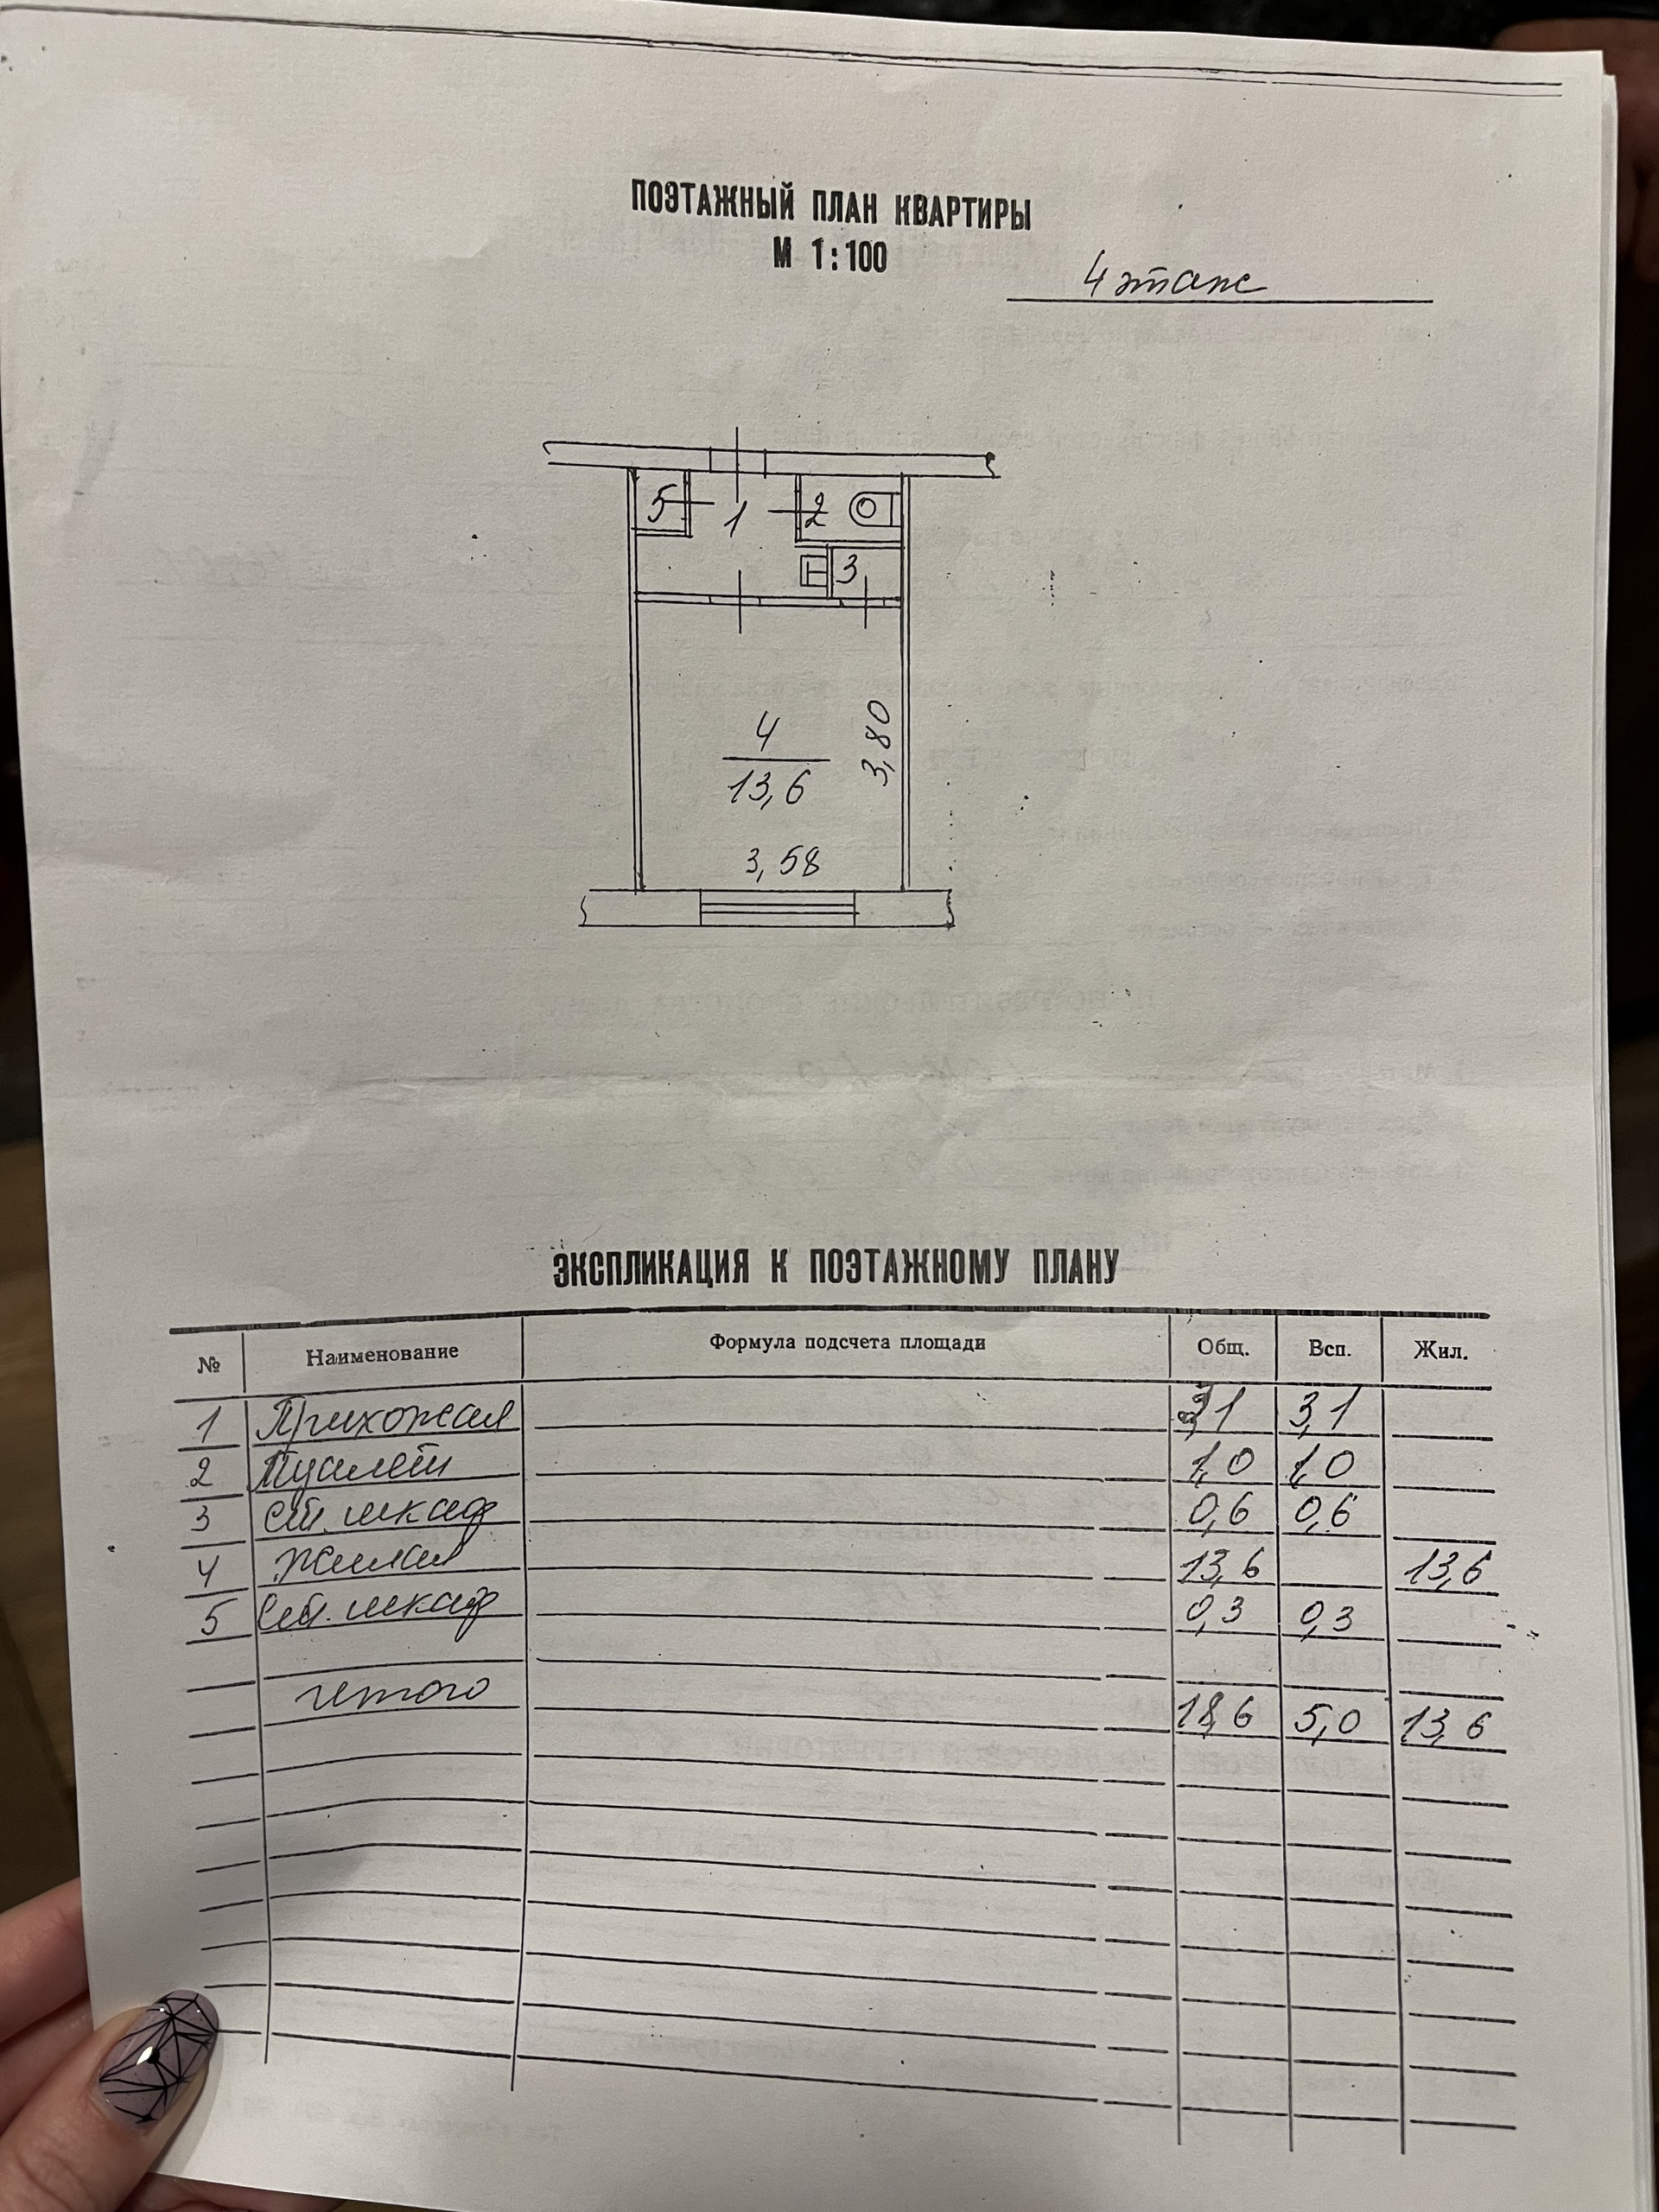 ПОЭТАЖНЫЙ ПЛАН КВАРТИРЫ
М 1:100
4 этаж
5 1 2
3
4
13,6
3,80
3,58
ЭКСПЛИКАЦИЯ К ПОЭТАЖНОМУ ПЛАНУ
№ Наименование Формула подсчета площади Общ. Всп. Жил.
1 Прихожая 3,1 3,1
2 Туалет 1,0 1,0
3 Ст. шкаф 0,6 0,6
4 Жилая 13,6 13,6
5 Ст. шкаф 0,3 0,3
итого 18,6 5,0 13,6